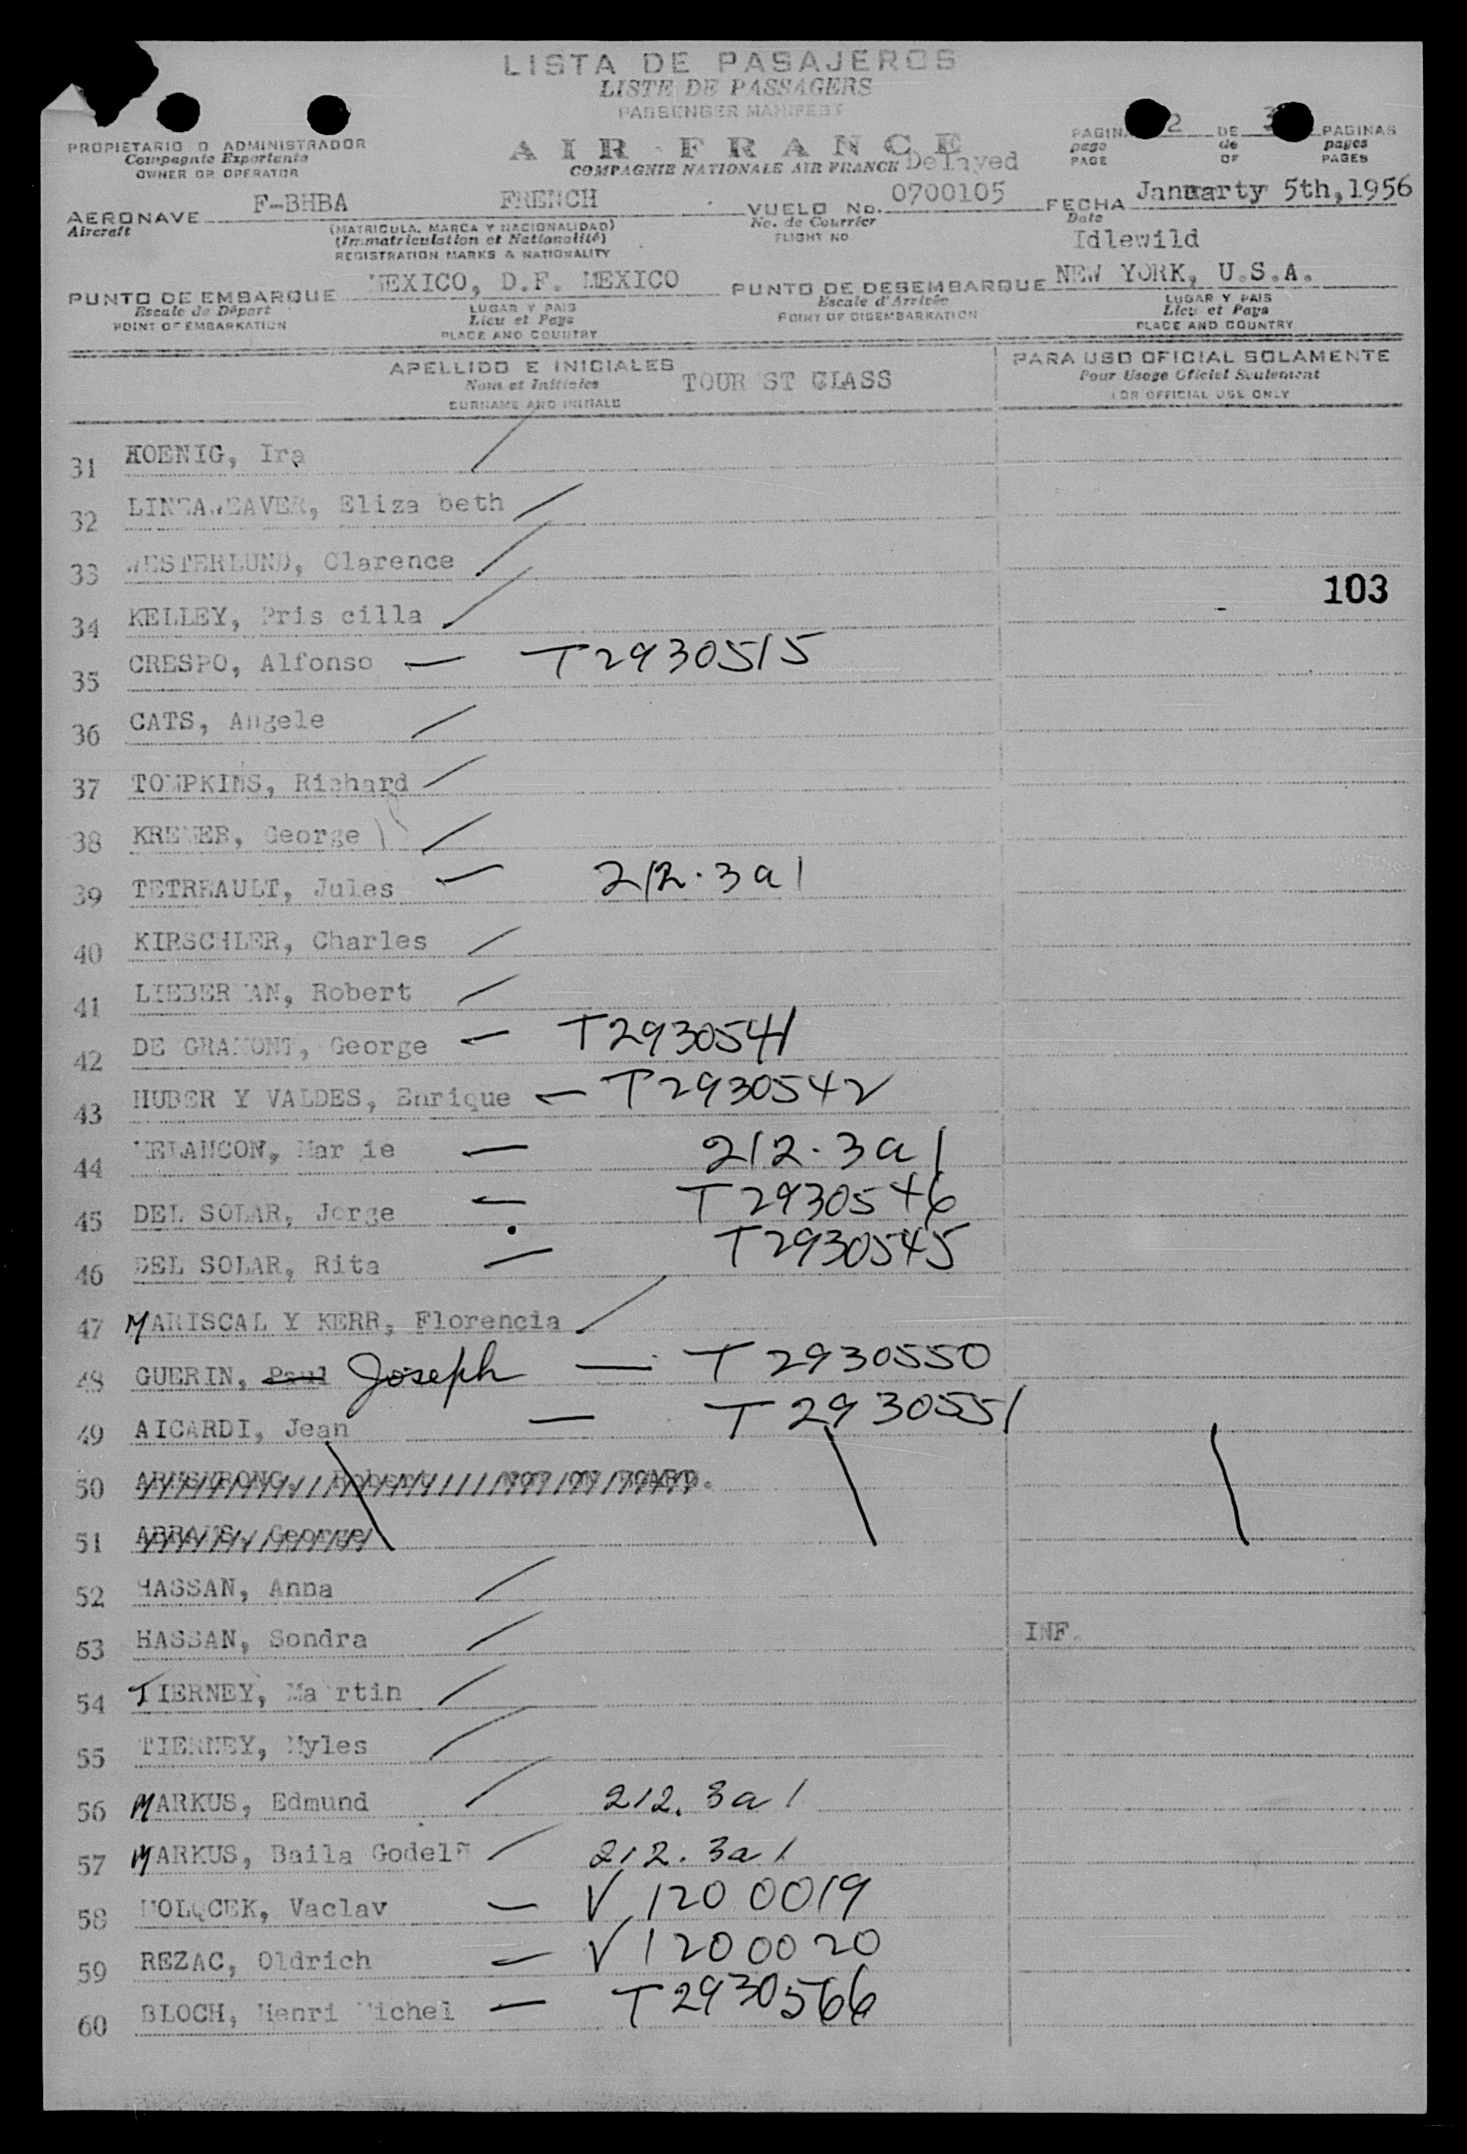 LISTA DE PASAJEROS
LISTE DE PASSAGERS
PASSENGER MANIFEST
PROPIETARIO O ADMINISTRADOR
Compagnie Exportante
OWNER OR OPERATOR
AIR FRANCE
COMPAGNIE NATIONALE AIR FRANCE Delayed
PAGINA 2 DE 3 PAGINAS
page de pages
PAGE OF PAGES
AERONAVE F-BHBA FRENCH VUELO No. 0700105 FECHA Januarty 5th,1956
Aircraft (MATRICULA, MARCA Y NACIONALIDAD) No. de Courrier Date
(Immatriculation et Nationalité) FLIGHT NO. Idlewild
REGISTRATION MARKS & NATIONALITY
PUNTO DE EMBARQUE MEXICO, D.F. MEXICO PUNTO DE DESEMBARQUE NEW YORK, U.S.A.
Escale de Départ LUGAR Y PAIS Escale d'Arrivée LUGAR Y PAIS
POINT OF EMBARKATION Lieu et Pays POINT OF DISEMBARKATION Lieu et Pays
PLACE AND COUNTRY PLACE AND COUNTRY
APELLIDO E INICIALES TOUR ST CLASS PARA USO OFICIAL SOLAMENTE
Nom et Initiales Pour Usage Oficiel Seulement
SURNAME AND INITIALS FOR OFFICIAL USE ONLY
31 KOENIG, Ira
32 LINEAWEAVER, Eliza beth
33 WESTERLUND, Clarence
103
34 KELLEY, Pris cilla
35 CRESPO, Alfonso — T2930515
36 CATS, Angele
37 TOMPKINS, Richard
38 KREMER, George
39 TETREAULT, Jules — 212.3a1
40 KIRSCHLER, Charles
41 LIEBERMAN, Robert
42 DE GRAMONT, George — T2930541
43 HUBER Y VALDES, Enrique — T2930542
44 MELANCON, Mar ie — 212.3a1
45 DEL SOLAR, Jorge — T2930546
46 DEL SOLAR, Rita — T2930545
47 MARISCAL Y KERR, Florencia
48 GUERIN, Paul Joseph — T2930550
49 AICARDI, Jean — T2930551
50 ARMSTRONG, Robert NOT ON BOARD.
51 ABRAMS, George
52 HASSAN, Anna
53 HASSAN, Sondra INF.
54 TIERNEY, Ma rtin
55 TIERNEY, Myles
56 MARKUS, Edmund 212.3a1
57 MARKUS, Baila Godel 212.3a1
58 HOLECEK, Vaclav — V1200019
59 REZAC, Oldrich — V1200020
60 BLOCH, Henri Michel — T2930566